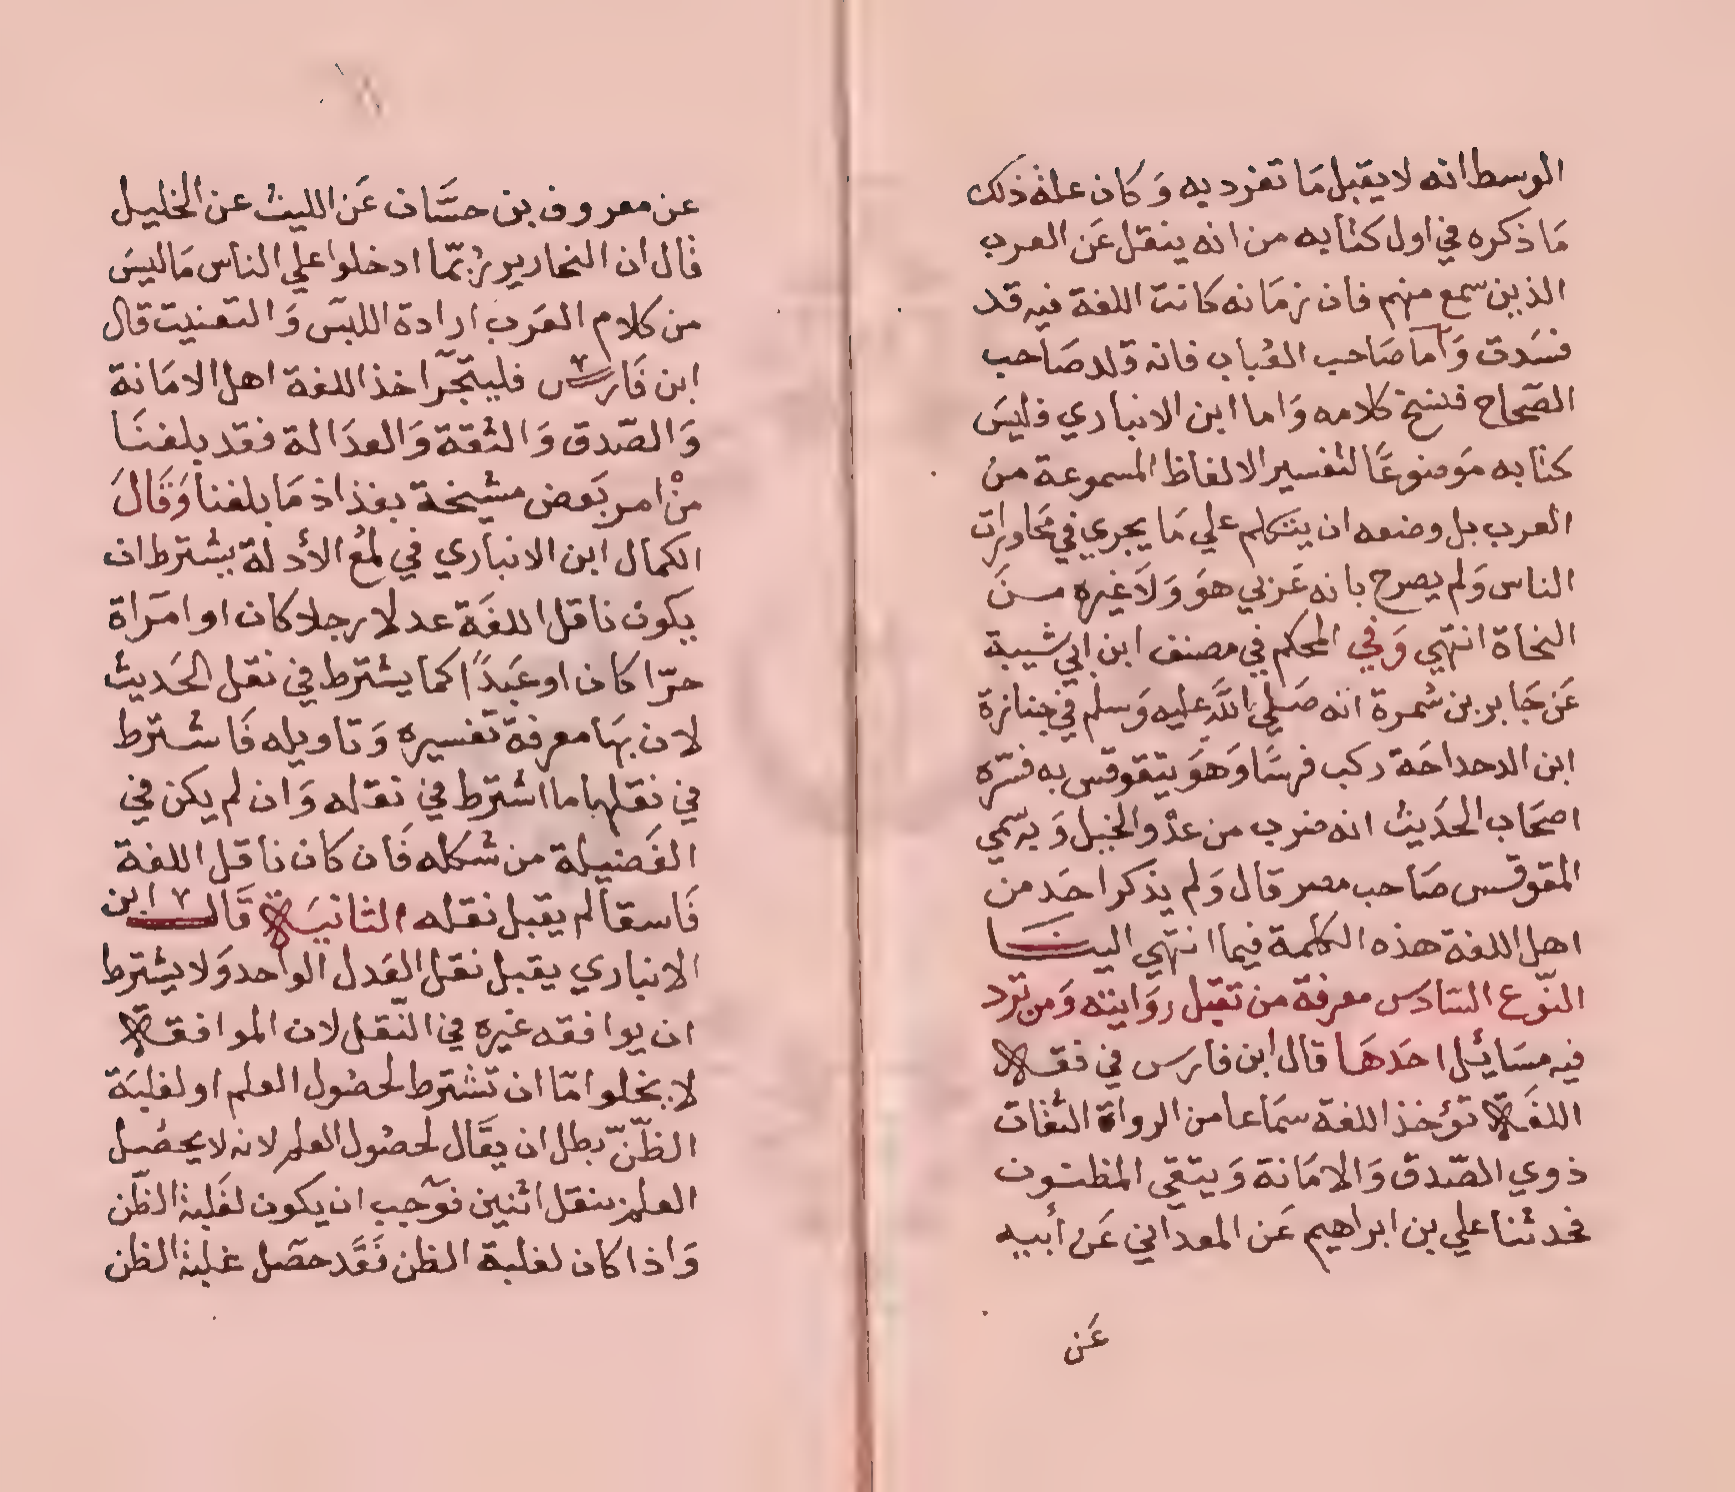 الوسط انه لا يقبل مَا تفرد به وَكان علة ذلك
مَا ذكره في اول كتابه من انه ينقل عَن العرب
الذين سمع منهم فان زمَانه كانت اللغة فيه قد
فسَدت وَاما صَاحب العُباب فانه قلد صَاحب
الصّحاح فنسخ كلامه وَاما ابن الانباري فليسَ
كتابه مَوضوعًا لتفسير الالفاظ المسموعة من
العرب بل وضعه ان يتكلم علي مَا يجري في مَحاورات
الناس وَلم يصرح بانه عَربي هوَ وَلاَ غيره مــنَ
النحاة انتهي وَفي المحكم في مصنف ابن ابي شيبة
عَن جَابر بن سُمرة انه صَلي اللّه عليه وَسلم في جنازة
ابن الدحداحَة ركب فرسًا وَهوَ يتقوقس به فسّره
اصحَاب الحَديث انه ضرب من عدْو الخيل وَبه سُمي
المقوقس صَاحب مصر قال وَلم يذكر احَد من
اهل اللغة هذه الكلمة فيما انتهي الينــا
النّوع السّادس معرفة من تقبل روَايته وَمن تردّ
فيه مسَائِل احَدهَا قال ابن فارس في فقــه
اللغَــة تؤخذ اللغة سمَاعا من الرواة الثقات
ذوي الصّدق وَالامَانة وَيتقي المظنــون
فحدثنا علي بن ابراهيم عَن المعداني عَن أبيه
عَن
عن معروف بن حسَّان عَن الليث عن الخليل
قال ان النحارير رُبّما ادخلوا علي الناس مَا ليسَ
من كلام العَرب ارادة اللبس وَالتعنيت قال
ابن فَارس فليتحَرّ اخذ اللغة اهل الامَانة
وَالصّدق وَالثقة وَالعدَالة فقد بلغنَا
منْ امر بَعض مشيخة بغداذ مَا بلغنا وَقَالَ
الكمال ابن الانباري في لمُع الأدلة يشترط ان
يكون ناقل اللغَة عدلا رجلا كان او امرَاة
حرّا كان او عَبدًا كما يشترط في نقل الحَديث
لان بهَا معرفة تفسيره وَتاويله فَاشترط
في نقلها ما اشترط في نقله وَان لم يكن في
الفَضيلة من شكله فَان كان ناقل اللغة
فَاسقا لم يقبل نقله الثانيَــة قَالــ ابن
الانباري يقبل نقل العَدل الواحد وَلا يشترط
ان يوافقه غيره في النّقل لان الموافقــة
لا يخلو امّا ان تشترط لحصُول العلم او لغلبَة
الظّنّ بطل ان يقَال لحصُول العلم لانه لا يحصُل
العلم بنقل اثنين فوَجب ان يكون لغَلبة الظّن
وَاذا كان لغلبة الظن فقَد حصَل غلبة الظن